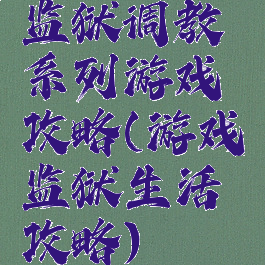 监狱调教
系列游戏
攻略(游戏
监狱生活
攻略)